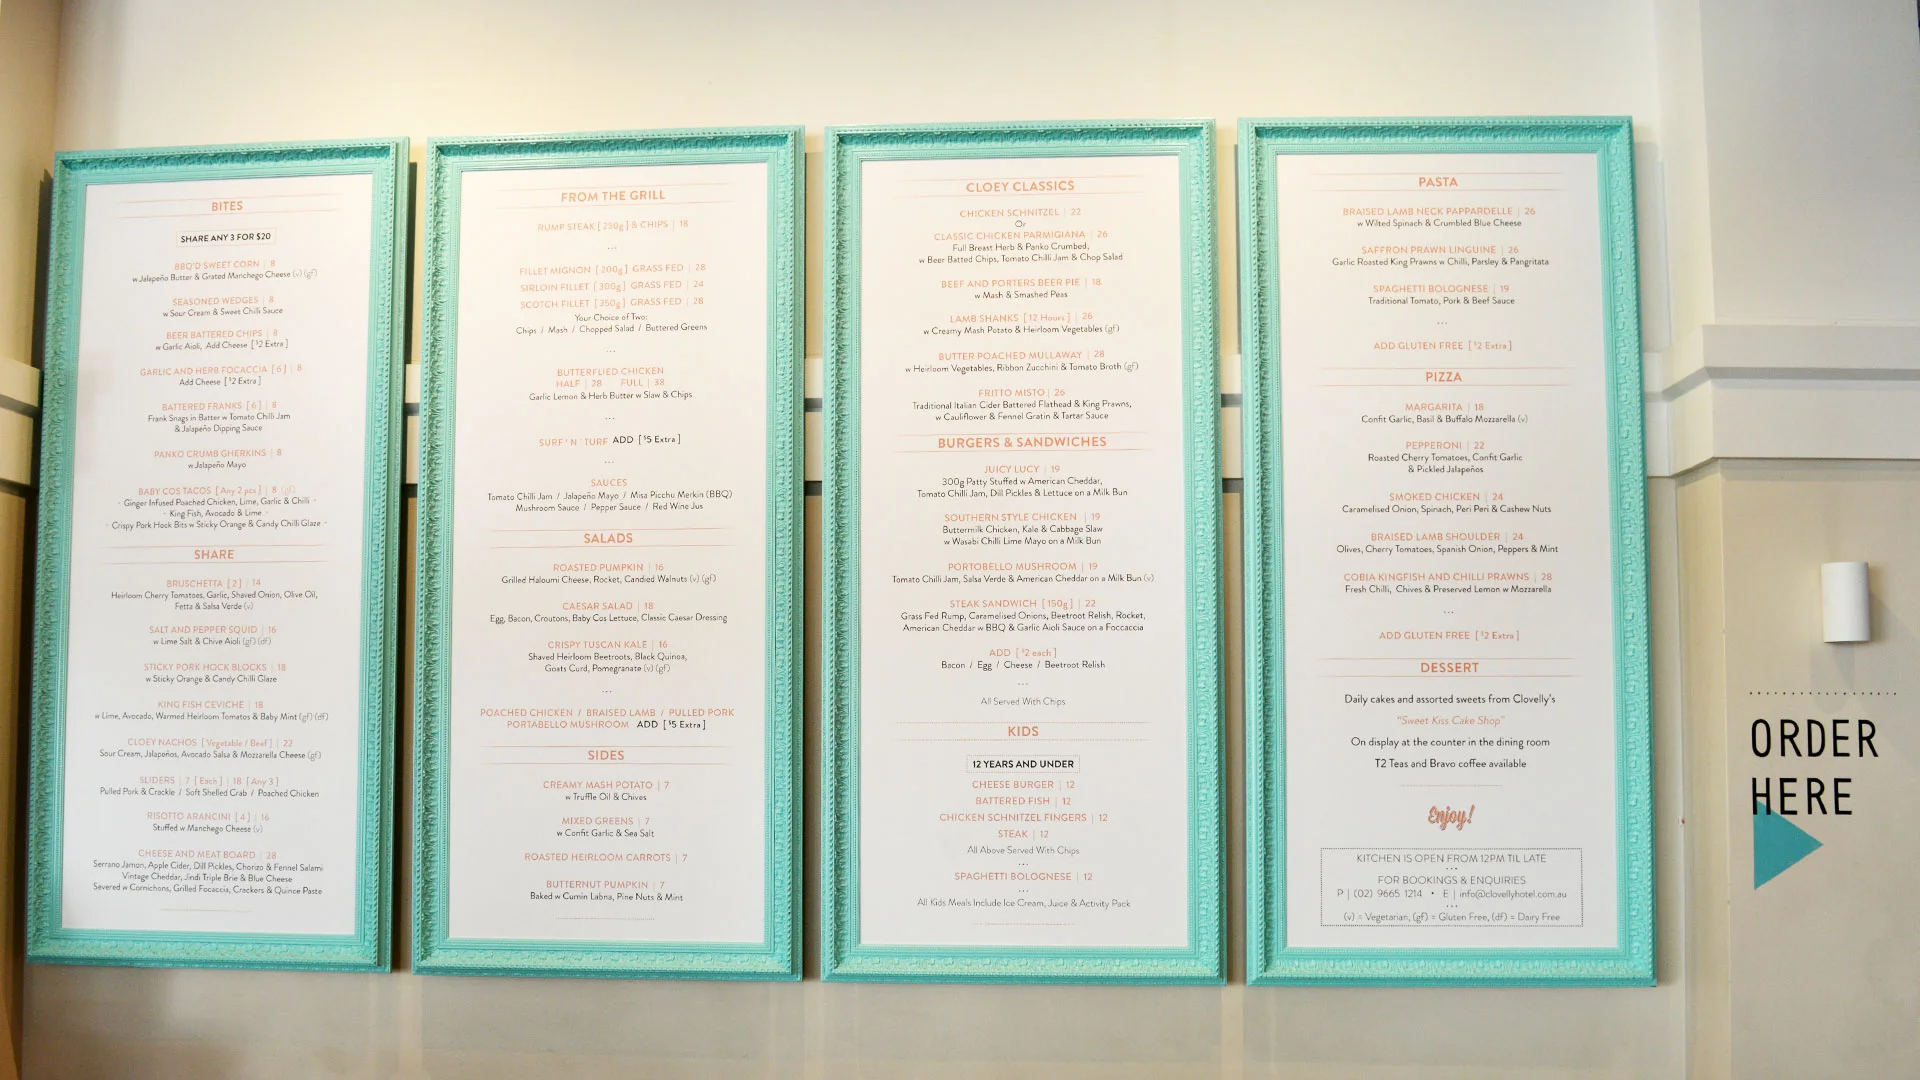 BITES
SHARE ANY 3 FOR $20
BBQ'D SWEET CORN | 8
w Jalapeño Butter & Grated Manchego Cheese (v) (gf)
SEASONED WEDGES | 8
w Sour Cream & Sweet Chilli Sauce
BEER BATTERED CHIPS | 8
w Garlic Aioli, Add Cheese [ $2 Extra ]
GARLIC AND HERB FOCACCIA [ 6 ] | 8
Add Cheese [ $2 Extra ]
BATTERED FRANKS [ 6 ] | 8
Frank Snags in Batter w Tomato Chilli Jam
& Jalapeño Dipping Sauce
PANKO CRUMB GHERKINS | 8
w Jalapeño Mayo
BABY COS TACOS [ Any 2 pcs ] | 8 (gf)
- Ginger Infused Poached Chicken, Lime, Garlic & Chilli -
- King Fish, Avocado & Lime -
- Crispy Pork Hock Bits w Sticky Orange & Candy Chilli Glaze -
SHARE
BRUSCHETTA [ 2 ] | 14
Heirloom Cherry Tomatoes, Garlic, Shaved Onion, Olive Oil,
Fetta & Salsa Verde (v)
SALT AND PEPPER SQUID | 16
w Lime Salt & Chive Aioli (gf) (df)
STICKY PORK HOCK BLOCKS | 18
w Sticky Orange & Candy Chilli Glaze
KING FISH CEVICHE | 18
w Lime, Avocado, Warmed Heirloom Tomatos & Baby Mint (gf) (df)
CLOEY NACHOS [ Vegetable / Beef ] | 22
Sour Cream, Jalapeños, Avocado Salsa & Mozzarella Cheese (gf)
SLIDERS | 7 [ Each ] | 18 [ Any 3 ]
Pulled Pork & Crackle / Soft Shelled Crab / Poached Chicken
RISOTTO ARANCINI [ 4 ] | 16
Stuffed w Manchego Cheese (v)
CHEESE AND MEAT BOARD | 28
Serrano Jamon, Apple Cider, Dill Pickles, Chorizo & Fennel Salami
Vintage Cheddar, Jindi Triple Brie & Blue Cheese
Severed w Cornichons, Grilled Focaccia, Crackers & Quince Paste
FROM THE GRILL
RUMP STEAK [ 250g ] & CHIPS | 18
...
FILLET MIGNON [ 200g ] GRASS FED | 28
SIRLOIN FILLET [ 300g ] GRASS FED | 24
SCOTCH FILLET [ 350g ] GRASS FED | 28
Your Choice of Two:
Chips / Mash / Chopped Salad / Buttered Greens
...
BUTTERFLIED CHICKEN
HALF | 28 FULL | 38
Garlic Lemon & Herb Butter w Slaw & Chips
...
SURF 'N' TURF ADD [ $5 Extra ]
...
SAUCES
Tomato Chilli Jam / Jalapeño Mayo / Misa Picchu Merkin (BBQ)
Mushroom Sauce / Pepper Sauce / Red Wine Jus
SALADS
ROASTED PUMPKIN | 16
Grilled Haloumi Cheese, Rocket, Candied Walnuts (v) (gf)
CAESAR SALAD | 18
Egg, Bacon, Croutons, Baby Cos Lettuce, Classic Caesar Dressing
CRISPY TUSCAN KALE | 16
Shaved Heirloom Beetroots, Black Quinoa,
Goats Curd, Pomegranate (v) (gf)
...
POACHED CHICKEN / BRAISED LAMB / PULLED PORK
PORTABELLO MUSHROOM ADD [ $5 Extra ]
SIDES
CREAMY MASH POTATO | 7
w Truffle Oil & Chives
MIXED GREENS | 7
w Confit Garlic & Sea Salt
ROASTED HEIRLOOM CARROTS | 7
BUTTERNUT PUMPKIN | 7
Baked w Cumin Labna, Pine Nuts & Mint
CLOEY CLASSICS
CHICKEN SCHNITZEL | 22
Or
CLASSIC CHICKEN PARMIGIANA | 26
Full Breast Herb & Panko Crumbed,
w Beer Batted Chips, Tomato Chilli Jam & Chop Salad
BEEF AND PORTERS BEER PIE | 18
w Mash & Smashed Peas
LAMB SHANKS [ 12 Hours ] | 26
w Creamy Mash Potato & Heirloom Vegetables (gf)
BUTTER POACHED MULLAWAY | 28
w Heirloom Vegetables, Ribbon Zucchini & Tomato Broth (gf)
FRITTO MISTO | 26
Traditional Italian Cider Battered Flathead & King Prawns,
w Cauliflower & Fennel Gratin & Tartar Sauce
BURGERS & SANDWICHES
JUICY LUCY | 19
300g Patty Stuffed w American Cheddar,
Tomato Chilli Jam, Dill Pickles & Lettuce on a Milk Bun
SOUTHERN STYLE CHICKEN | 19
Buttermilk Chicken, Kale & Cabbage Slaw
w Wasabi Chilli Lime Mayo on a Milk Bun
PORTOBELLO MUSHROOM | 19
Tomato Chilli Jam, Salsa Verde & American Cheddar on a Milk Bun (v)
STEAK SANDWICH [ 150g ] | 22
Grass Fed Rump, Caramelised Onions, Beetroot Relish, Rocket,
American Cheddar w BBQ & Garlic Aioli Sauce on a Foccaccia
ADD [ $2 each ]
Bacon / Egg / Cheese / Beetroot Relish
...
All Served With Chips
KIDS
12 YEARS AND UNDER
CHEESE BURGER | 12
BATTERED FISH | 12
CHICKEN SCHNITZEL FINGERS | 12
STEAK | 12
All Above Served With Chips
...
SPAGHETTI BOLOGNESE | 12
...
All Kids Meals Include Ice Cream, Juice & Activity Pack
PASTA
BRAISED LAMB NECK PAPPARDELLE | 26
w Wilted Spinach & Crumbled Blue Cheese
SAFFRON PRAWN LINGUINE | 26
Garlic Roasted King Prawns w Chilli, Parsley & Pangritata
SPAGHETTI BOLOGNESE | 19
Traditional Tomato, Pork & Beef Sauce
...
ADD GLUTEN FREE [ $2 Extra ]
PIZZA
MARGARITA | 18
Confit Garlic, Basil & Buffalo Mozzarella (v)
PEPPERONI | 22
Roasted Cherry Tomatoes, Confit Garlic
& Pickled Jalapeños
SMOKED CHICKEN | 24
Caramelised Onion, Spinach, Peri Peri & Cashew Nuts
BRAISED LAMB SHOULDER | 24
Olives, Cherry Tomatoes, Spanish Onion, Peppers & Mint
COBIA KINGFISH AND CHILLI PRAWNS | 28
Fresh Chilli, Chives & Preserved Lemon w Mozzarella
...
ADD GLUTEN FREE [ $2 Extra ]
DESSERT
Daily cakes and assorted sweets from Clovelly's
"Sweet Kiss Cake Shop"
On display at the counter in the dining room
T2 Teas and Bravo coffee available
Enjoy!
KITCHEN IS OPEN FROM 12PM TIL LATE
...
FOR BOOKINGS & ENQUIRIES
P | (02) 9665 1214 • E | info@clovellyhotel.com.au
...
(v) = Vegetarian, (gf) = Gluten Free, (df) = Dairy Free
ORDER
HERE